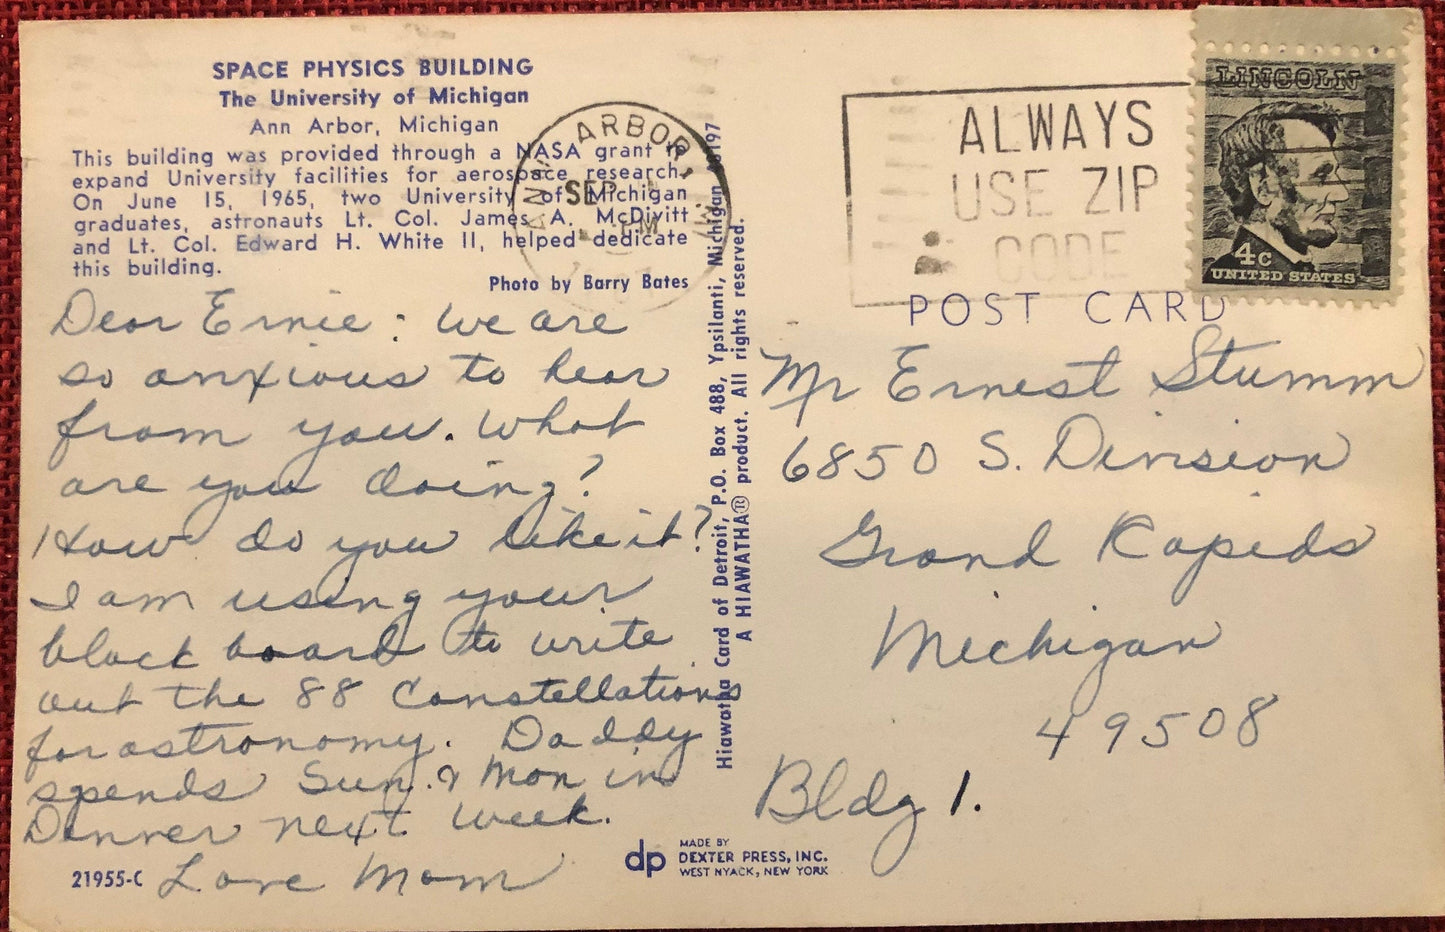 SPACE PHYSICS BUILDING
The University of Michigan
Ann Arbor, Michigan
This building was provided through a NASA grant to
expand University facilities for aerospace research.
On June 15, 1965, two University of Michigan
graduates, astronauts Lt. Col. James A. McDivitt
and Lt. Col. Edward H. White II, helped dedicate
this building.
Photo by Barry Bates
Dear Ernie: We are
so anxious to hear
from you. What
are you doing?
How do you like it?
I am using your
black board to write
out the 88 Constellations
for astronomy. Daddy
spends Sun. & Mon in
Denver next week.
Love Mom
21955-C
Hiawatha Card of Detroit, P.O. Box 488, Ypsilanti, Michigan 48197
A HIAWATHA® product. All rights reserved.
dp
MADE BY
DEXTER PRESS, INC.
WEST NYACK, NEW YORK
ANN ARBOR, MI
SEP
PM
ALWAYS
USE ZIP
CODE
LINCOLN
4c
UNITED STATES
POST CARD
Mr Ernest Stumm
6850 S. Division
Grand Rapids
Michigan
49508
Bldg 1.